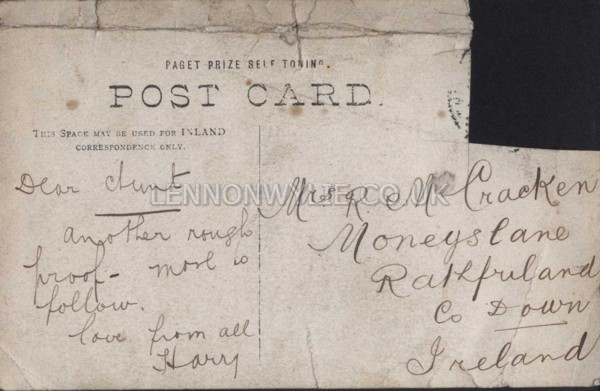 PAGET PRIZE SELF TONING.
POST CARD.
THIS SPACE MAY BE USED FOR INLAND
CORRESPONDENCE ONLY.
Dear Aunt
another rough
proof - more to
follow.
love from all
Harry
Mrs R. McCracken
Moneyslane
Rathfriland
Co Down
Ireland
LENNONWYLIE.CO.UK